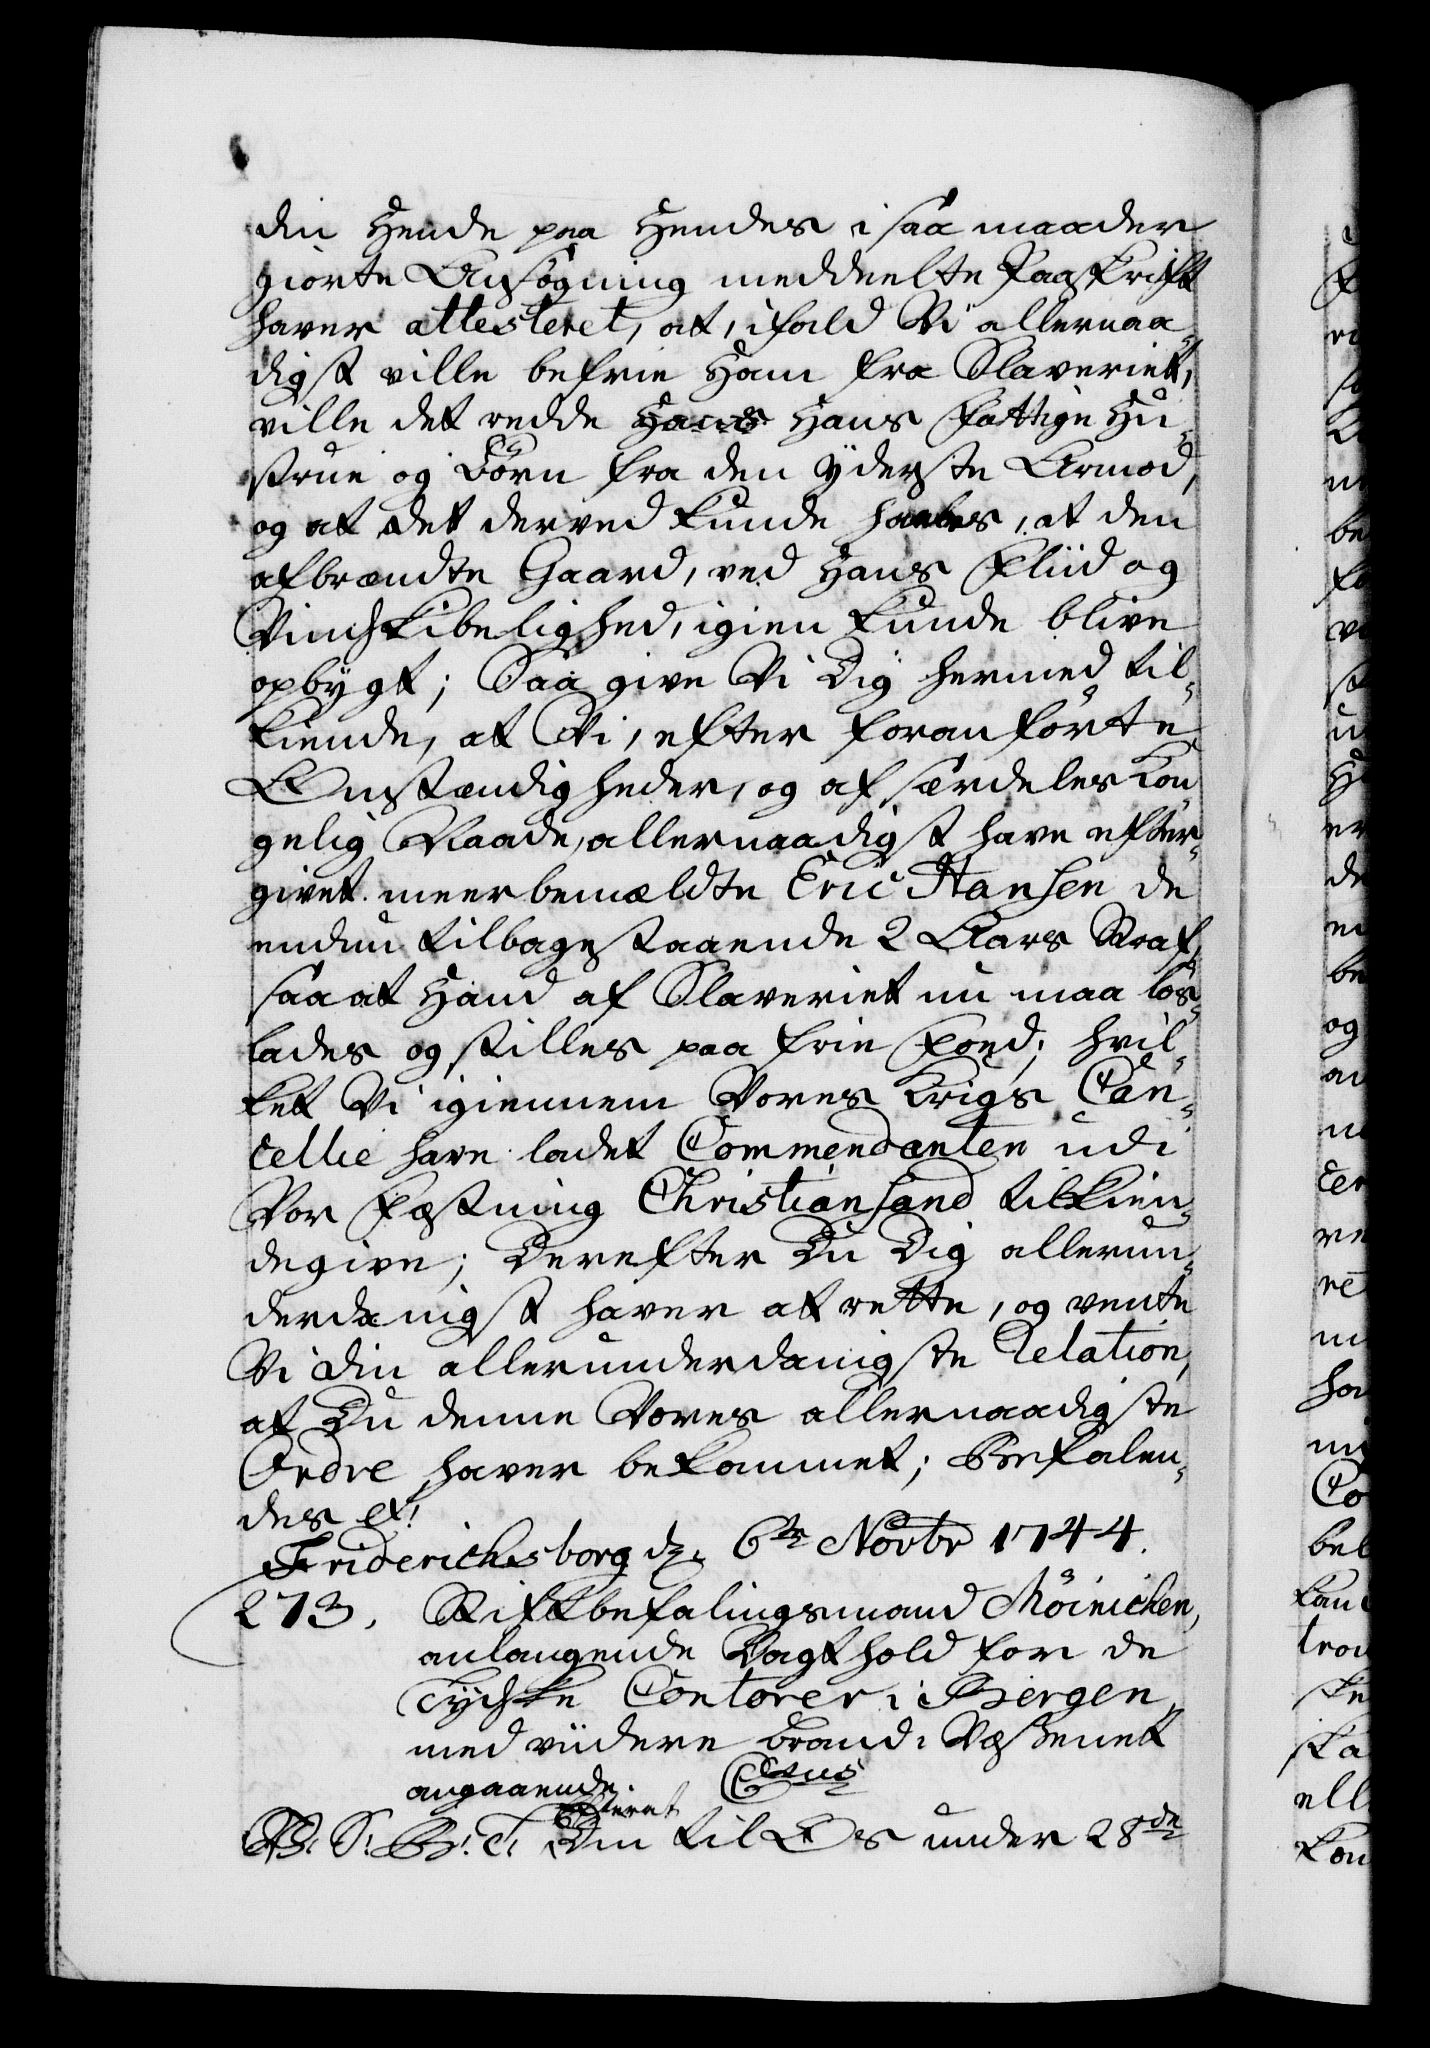 din Hende paa Hendes i saa maader
giorte Ansøgning meddeelte Paaskrift
haver attesteret, at, ifald Vi allernaa-
digst ville befrie Ham fra Slaveriet,
ville det redde Hans Fattige Hu-
strue og Børn fra den yderste Armod,
og at det derved kunde haabes, at den
afbrændte Gaard, ved Hans Fliid og
Vindskibelighed, igien kunde blive
opbygt; Saa give Vi Dig hermed til-
kiende, at Vi, efter foranførte
Omstændigheder, og af særdeles Kon
gelig Naade, allernaadigst have efter-
givet meerbemældte Eric Hansen de
endnu tilbagestaaende 2 Aars Straf,
saa at Hand af Slaveriet nu maa løs-
lades og stilles paa frie Foed; hvil-
ket Vi igiennem Vores Krigs Can-
cellie have ladet Commendanten udi
Vor Fæstning Christiansand tilkien-
degive; Derefter Du Dig allerun-
derdanigst haver at rette, og vente
Vi din allerunderdanigste Relation,
at Du denne Vores allernaadigste
Ordre haver bekommet; Befalen-
des etc:
Friderichsborg d: 6te Novbr 1744.
273. Stiftbefalingsmand Möinichen,
anlangende Vagthold for de
Tydske Contorer i Bergen,
med viidere Brand-Væsenet
angaaende.
C. S: B: T: Eftterat Du til Os under 28de